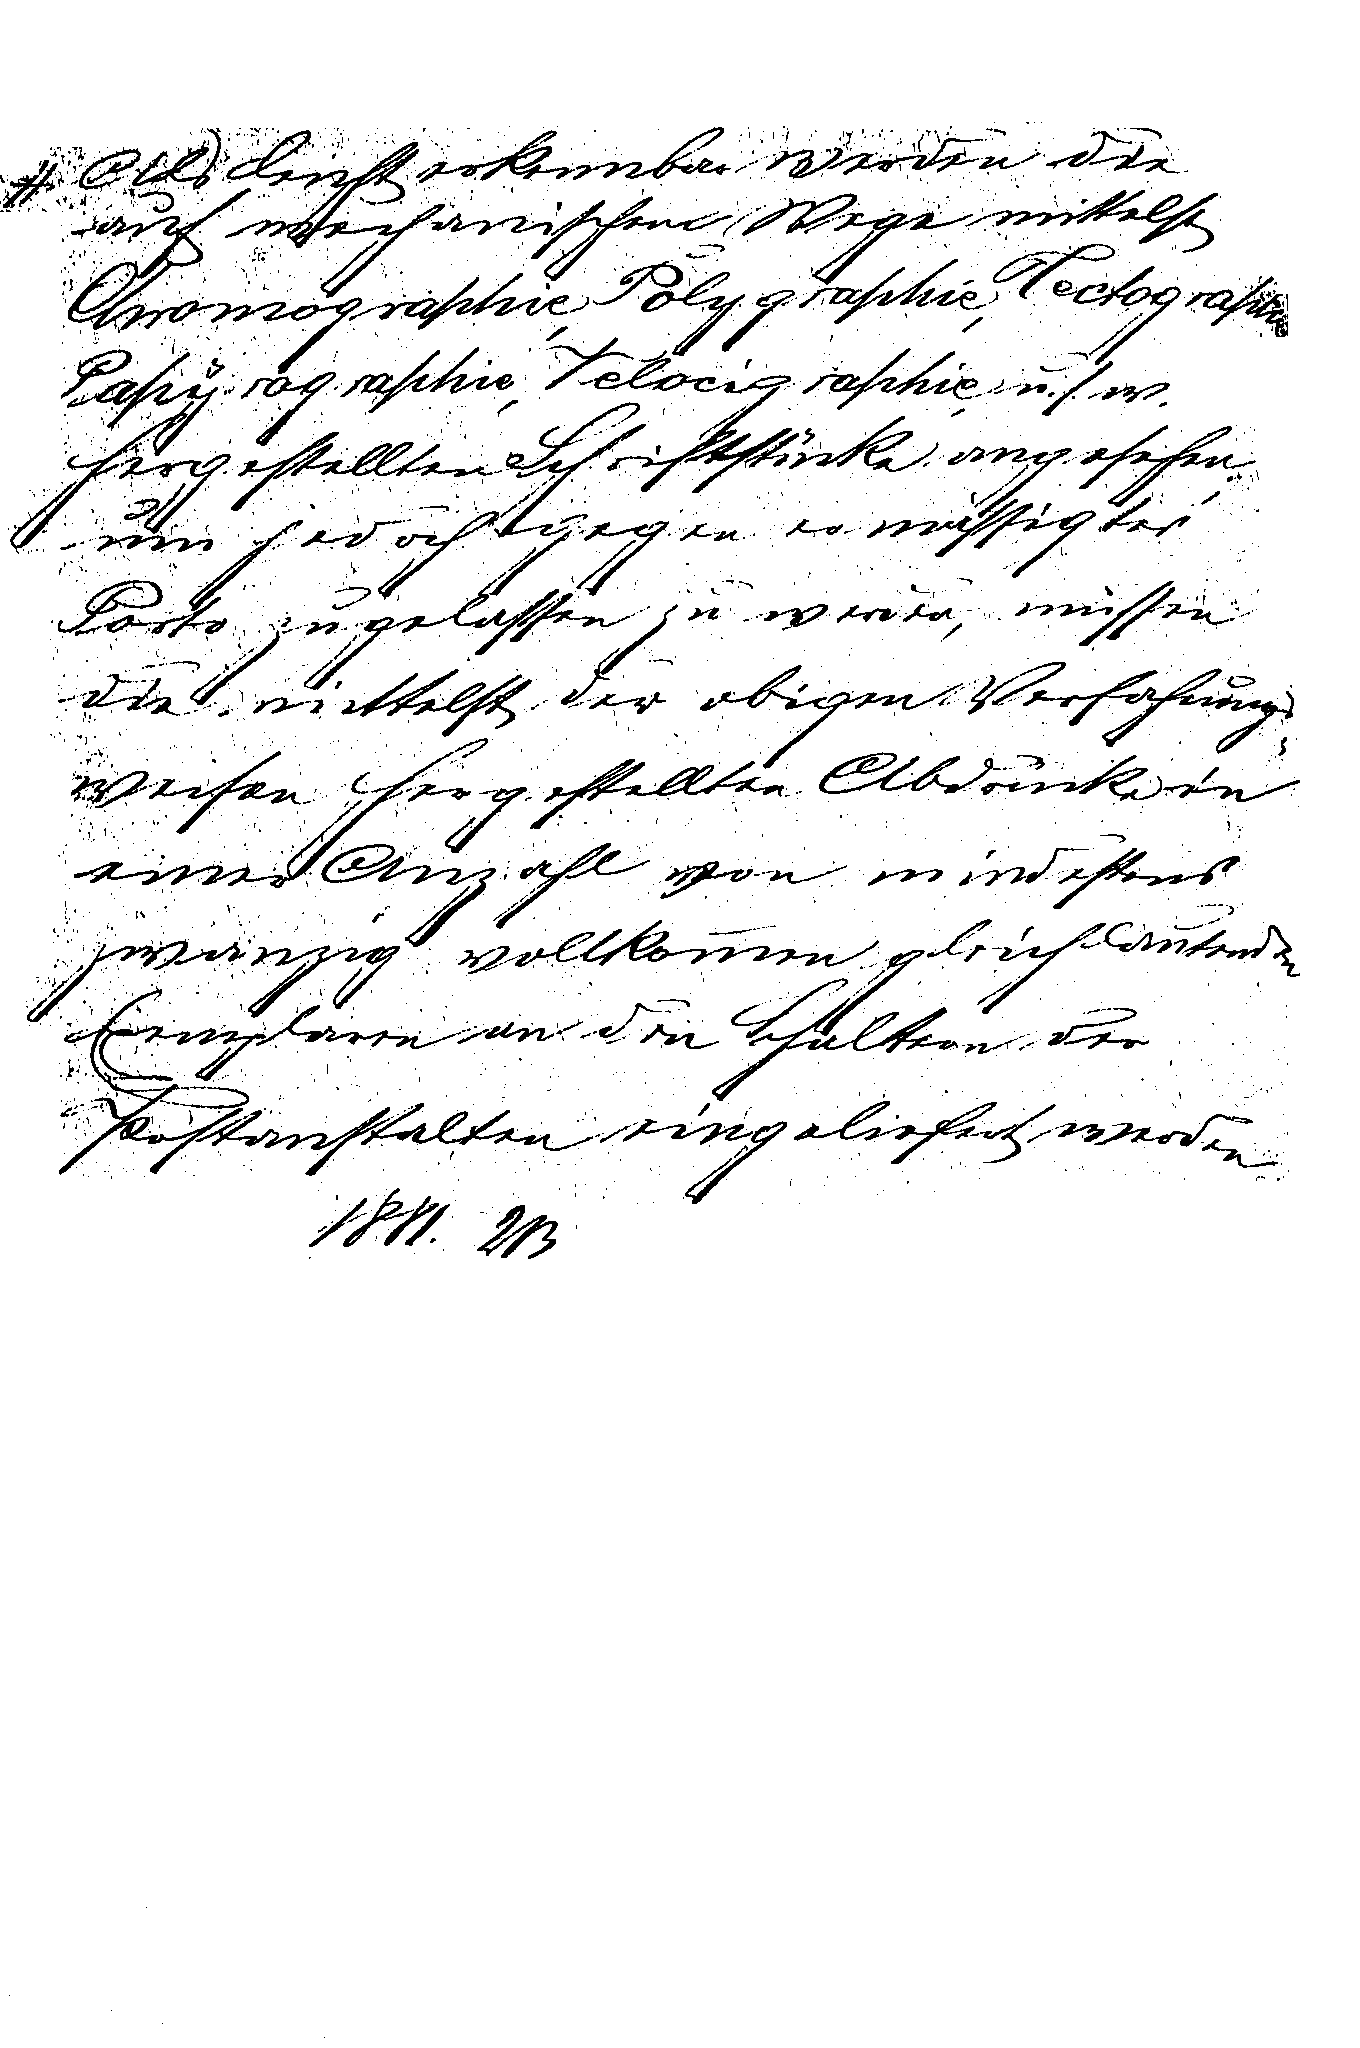 # Als leicht erkennbar werden die
auf mechanischem Wege mittelst
Chromographie, Polygraphie, Tectographie
Papyrographie, Velocigraphie, u. s. w.
hergestellten Schriftstücke angesehen,
um jedoch gegen ermässigtes
Porto zugelassen zu werden, müssen
die mittelst der obigen Verfahrungs-
weisen hergestellten Abdrücke in
einer Anzahl von mindestens
zwanzig vollkommen gleichlautenden
Exemplaren an den Schaltern der
Postanstalten eingeliefert werden
1881.